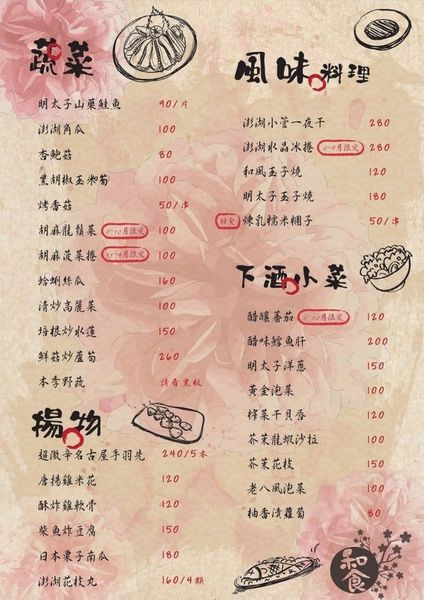 蔬菜
明太子山藥鮭魚 90/片
澎湖角瓜 100
杏鮑菇 80
黑胡椒玉米筍 100
烤香菇 50/串
胡麻龍鬚菜 月限定 100
胡麻菠菜捲 月限定 100
蛤蜊絲瓜 160
清炒高麗菜 100
培根炒水蓮 150
鮮菇炒蘆筍 260
本季野蔬 請看黑板
揚物
超激辛名古屋手羽先 240/5本
唐揚雞米花 120
酥炸雞軟骨 120
柴魚炸豆腐 150
日本栗子南瓜 180
澎湖花枝丸 160/4顆
風味料理
澎湖小管一夜干 280
澎湖水晶冰捲 月限定 280
和風玉子燒 150
明太子玉子燒 180
煉乳糯米糰子 50/串
下酒小菜
醋釀蕃茄 月限定 120
醋味鱈魚肝 200
明太子洋蔥 150
黃金泡菜 100
榨菜干貝唇 120
芥茉龍蝦沙拉 100
芥茉花枝 150
老八風泡菜 100
柚香漬蘿蔔 80
和食